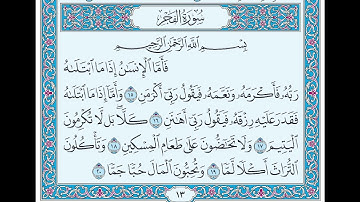 سُورَةُ الفَجْرِ
بِسْمِ اللَّهِ الرَّحْمَٰنِ الرَّحِيمِ
فَأَمَّا الْإِنسَٰنُ إِذَا مَا ابْتَلَىٰهُ
رَبُّهُ فَأَكْرَمَهُ وَنَعَّمَهُ فَيَقُولُ رَبِّي أَكْرَمَنِ ١٥ وَأَمَّا إِذَا مَا ابْتَلَىٰهُ
فَقَدَرَ عَلَيْهِ رِزْقَهُ فَيَقُولُ رَبِّي أَهَٰنَنِ ١٦ كَلَّا بَل لَّا تُكْرِمُونَ
الْيَتِيمَ ١٧ وَلَا تَحَٰضُّونَ عَلَىٰ طَعَامِ الْمِسْكِينِ ١٨ وَتَأْكُلُونَ
التُّرَاثَ أَكْلًا لَّمًّا ١٩ وَتُحِبُّونَ الْمَالَ حُبًّا جَمًّا ٢٠
١٣